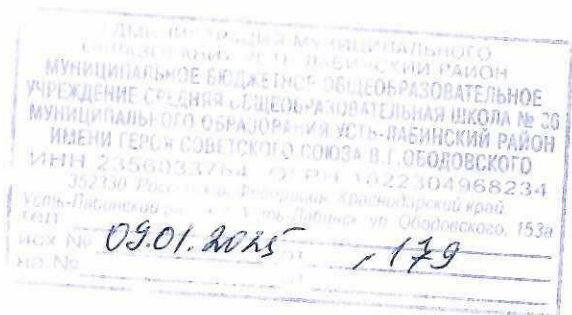 АДМИНИСТРАЦИЯ МУНИЦИПАЛЬНОГО
ОБРАЗОВАНИЯ УСТЬ-ЛАБИНСКИЙ РАЙОН
МУНИЦИПАЛЬНОЕ БЮДЖЕТНОЕ ОБЩЕОБРАЗОВАТЕЛЬНОЕ
УЧРЕЖДЕНИЕ СРЕДНЯЯ ОБЩЕОБРАЗОВАТЕЛЬНАЯ ШКОЛА № 36
МУНИЦИПАЛЬНОГО ОБРАЗОВАНИЯ УСТЬ-ЛАБИНСКИЙ РАЙОН
ИМЕНИ ГЕРОЯ СОВЕТСКОГО СОЮЗА В.Г.ОБОДОВСКОГО
ИНН 2356033764 ОГРН 1022304968234
352330 Российская Федерация, Краснодарский край
Усть-Лабинский г. Усть-Лабинск ул. Ободовского, 153а
тел
исх № 09.01.2025 от , 179
вх. №